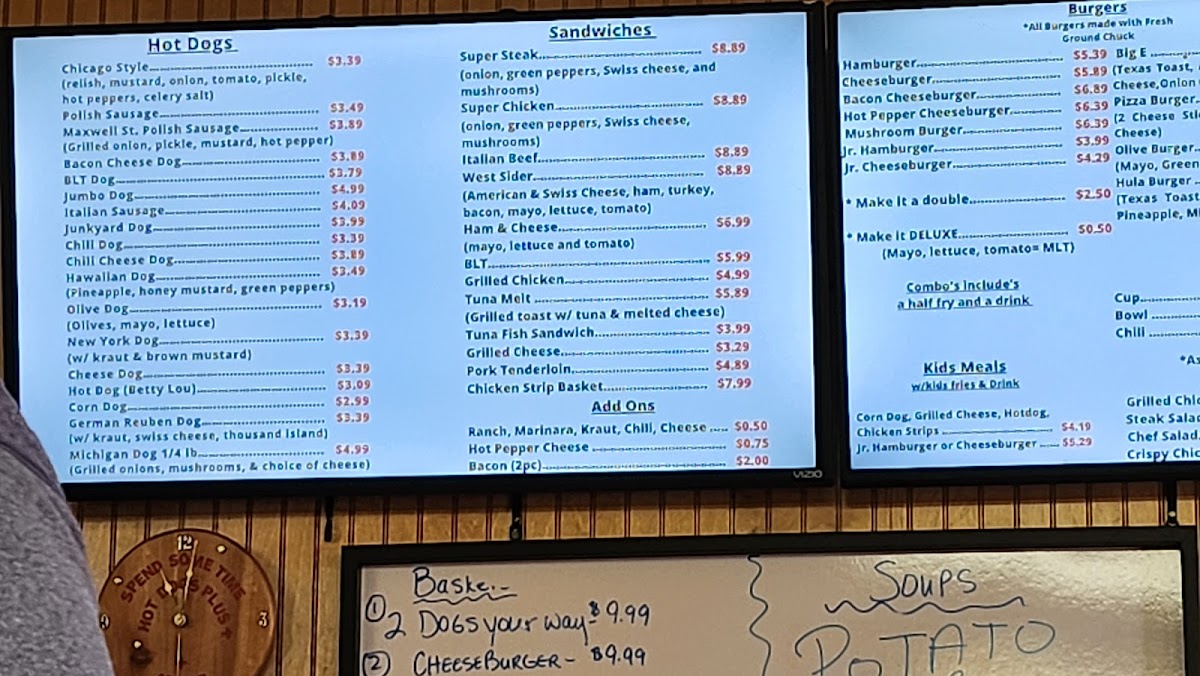 Hot Dogs
Chicago Style $3.39
(relish, mustard, onion, tomato, pickle,
hot peppers, celery salt)
Polish Sausage $3.49
Maxwell St. Polish Sausage $3.89
(Grilled onion, pickle, mustard, hot pepper)
Bacon Cheese Dog $3.89
BLT Dog $3.79
Jumbo Dog $4.99
Italian Sausage $4.09
Junkyard Dog $3.99
Chili Dog $3.39
Chili Cheese Dog $3.89
Hawaiian Dog $3.49
(Pineapple, honey mustard, green peppers)
Olive Dog $3.19
(Olives, mayo, lettuce)
New York Dog $3.39
(w/ kraut & brown mustard)
Cheese Dog $3.39
Hot Dog (Betty Lou) $3.09
Corn Dog $2.99
German Reuben Dog $3.39
(w/ kraut, swiss cheese, thousand island)
Michigan Dog 1/4 lb $4.99
(Grilled onions, mushrooms, & choice of cheese)
Sandwiches
Super Steak $8.89
(onion, green peppers, Swiss cheese, and
mushrooms)
Super Chicken $8.89
(onion, green peppers, Swiss cheese,
mushrooms)
Italian Beef $8.89
West Sider $8.89
(American & Swiss Cheese, ham, turkey,
bacon, mayo, lettuce, tomato)
Ham & Cheese $6.99
(mayo, lettuce and tomato)
BLT $5.99
Grilled Chicken $4.99
Tuna Melt $5.89
(Grilled toast w/ tuna & melted cheese)
Tuna Fish Sandwich $3.99
Grilled Cheese $3.29
Pork Tenderloin $4.89
Chicken Strip Basket $7.99
Add Ons
Ranch, Marinara, Kraut, Chili, Cheese $0.50
Hot Pepper Cheese $0.75
Bacon (2pc) $2.00
VIZIO
Burgers
*All Burgers made with Fresh
Ground Chuck
Hamburger $5.39
Cheeseburger $5.89
Bacon Cheeseburger $6.89
Hot Pepper Cheeseburger $6.39
Mushroom Burger $6.39
Jr. Hamburger $3.99
Jr. Cheeseburger $4.29
* Make it a double $2.50
* Make it DELUXE $0.50
(Mayo, lettuce, tomato= MLT)
Combo's include's
a half fry and a drink
Kids Meals
w/kids fries & Drink
Corn Dog, Grilled Cheese, Hotdog,
Chicken Strips $4.19
Jr. Hamburger or Cheeseburger $5.29
Big E
(Texas Toast,
Cheese, Onion
Pizza Burger
(2 Cheese
Cheese)
Olive Burger
(Mayo, Green
Hula Burger
(Texas Toast
Pineapple,
Cup
Bowl
Chili
Grilled
Steak
Chef Salad
Crispy
12
3
9
SPEND SOME TIME
HOT DOGS PLUS
① 2 DOGS YOUR WAY - $9.99
② CHEESEBURGER - $9.99
SOUPS
POTATO